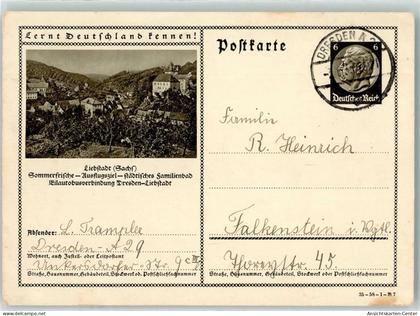 Lernt Deutschland kennen!
Liebstadt (Sachs)
Sommerfrische – Ausflugsziel – städtisches Familienbad
Eilautobusverbindung Dresden–Liebstadt
Absender: L. Trampler
Dresden-A 29
Wohnort, auch Zustell- oder Leitpostamt
Unkersdorfer-Str. 9c
Straße, Hausnummer, Gebäudeteil, Stockwerk od. Postschließfachnummer
Postkarte
DRESDEN A
6 6
Deutsches Reich
Familie
R. Heinrich
Falkenstein i. Vgtl.
Thoreystr. 45.
Straße, Hausnummer, Gebäudeteil, Stockwerk oder Postschließfachnummer
35-58-1-B7
Ansichtskarten-Center